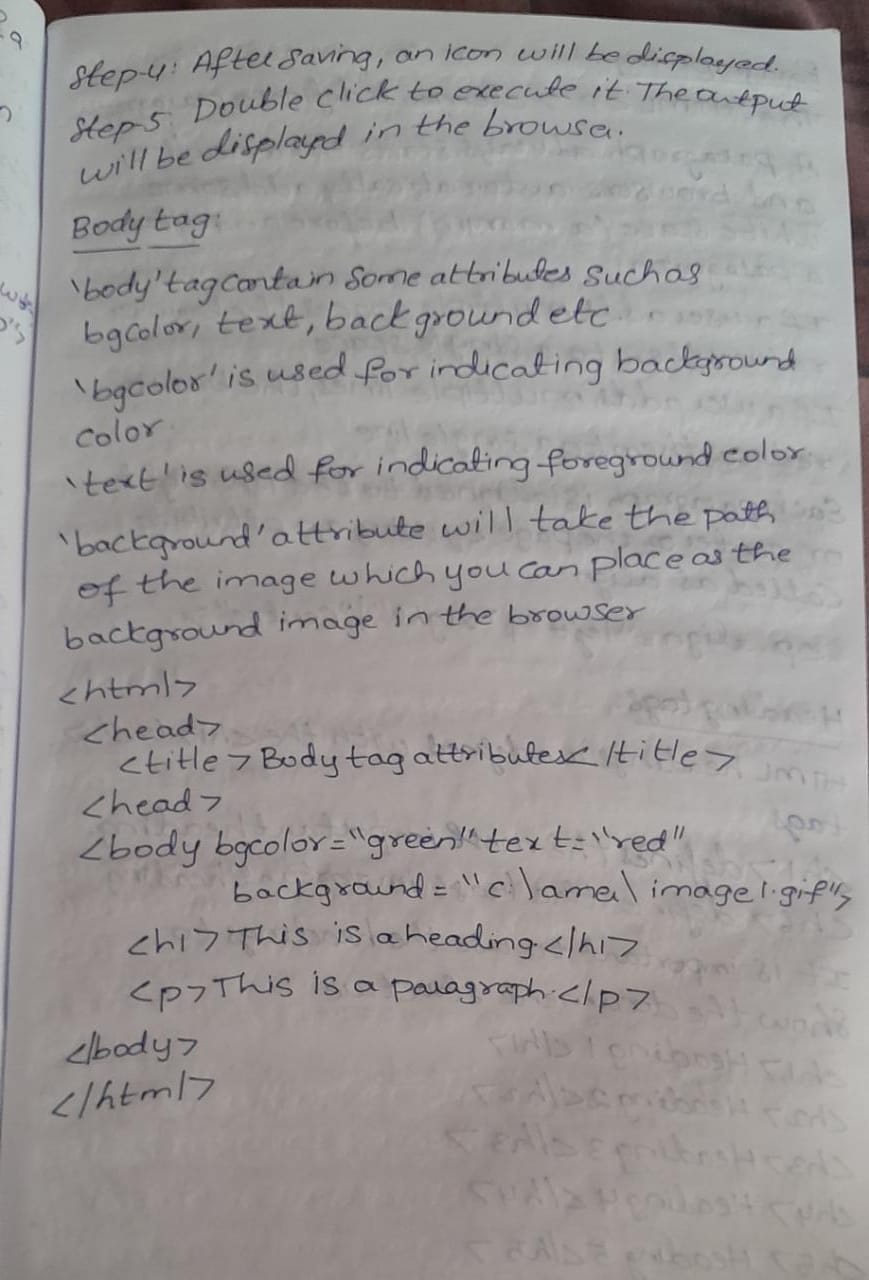 Step-4: After saving, an icon will be displayed.
Step-5: Double click to execute it. The output
will be displayed in the browser.
Body tag:
'body' tag contain some attributes such as
bgcolor, text, background etc
'bgcolor' is used for indicating background
color
'text' is used for indicating foreground color
'background' attribute will take the path
of the image which you can place as the
background image in the browser
<html>
<head>
<title>Body tag attributes</title>
<head>
<body bgcolor="green" text="red"
background="c:\amer\image1.gif">
<h1>This is a heading.</h1>
<p>This is a paragraph.</p>
</body>
</html>